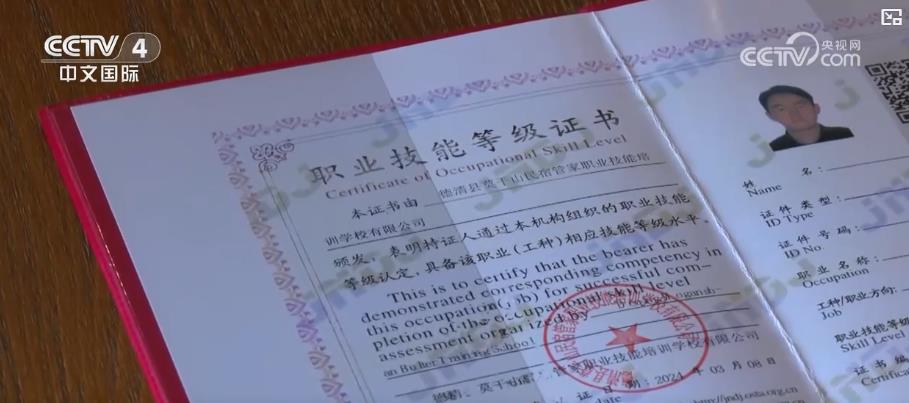 CCTV 4
中文国际
CCTV 央视网
com
职业技能等级证书
Certificate of Occupational Skill Level
本证书由 德清县莫干山民宿管家职业技能培
训学校有限公司
颁发，表明持证人通过本机构组织的职业技能
等级认定，具备该职业(工种)相应技能等级水平。
This is to certify that the bearer has
demonstrated corresponding competency in
this occupation(job) for successful com-
pletion of the occupational skill level
assessment organized by
an Butler Training School
管家职业技能培训学校有限公司
期： 2024 年 03 月 08 日
date
姓 名：
Name
证件类型：
ID Type
证件号码：
ID No.
职业名称：
Occupation
工种/职业方向：
Job
职业技能等级
Skill Level
证书编
Certificate